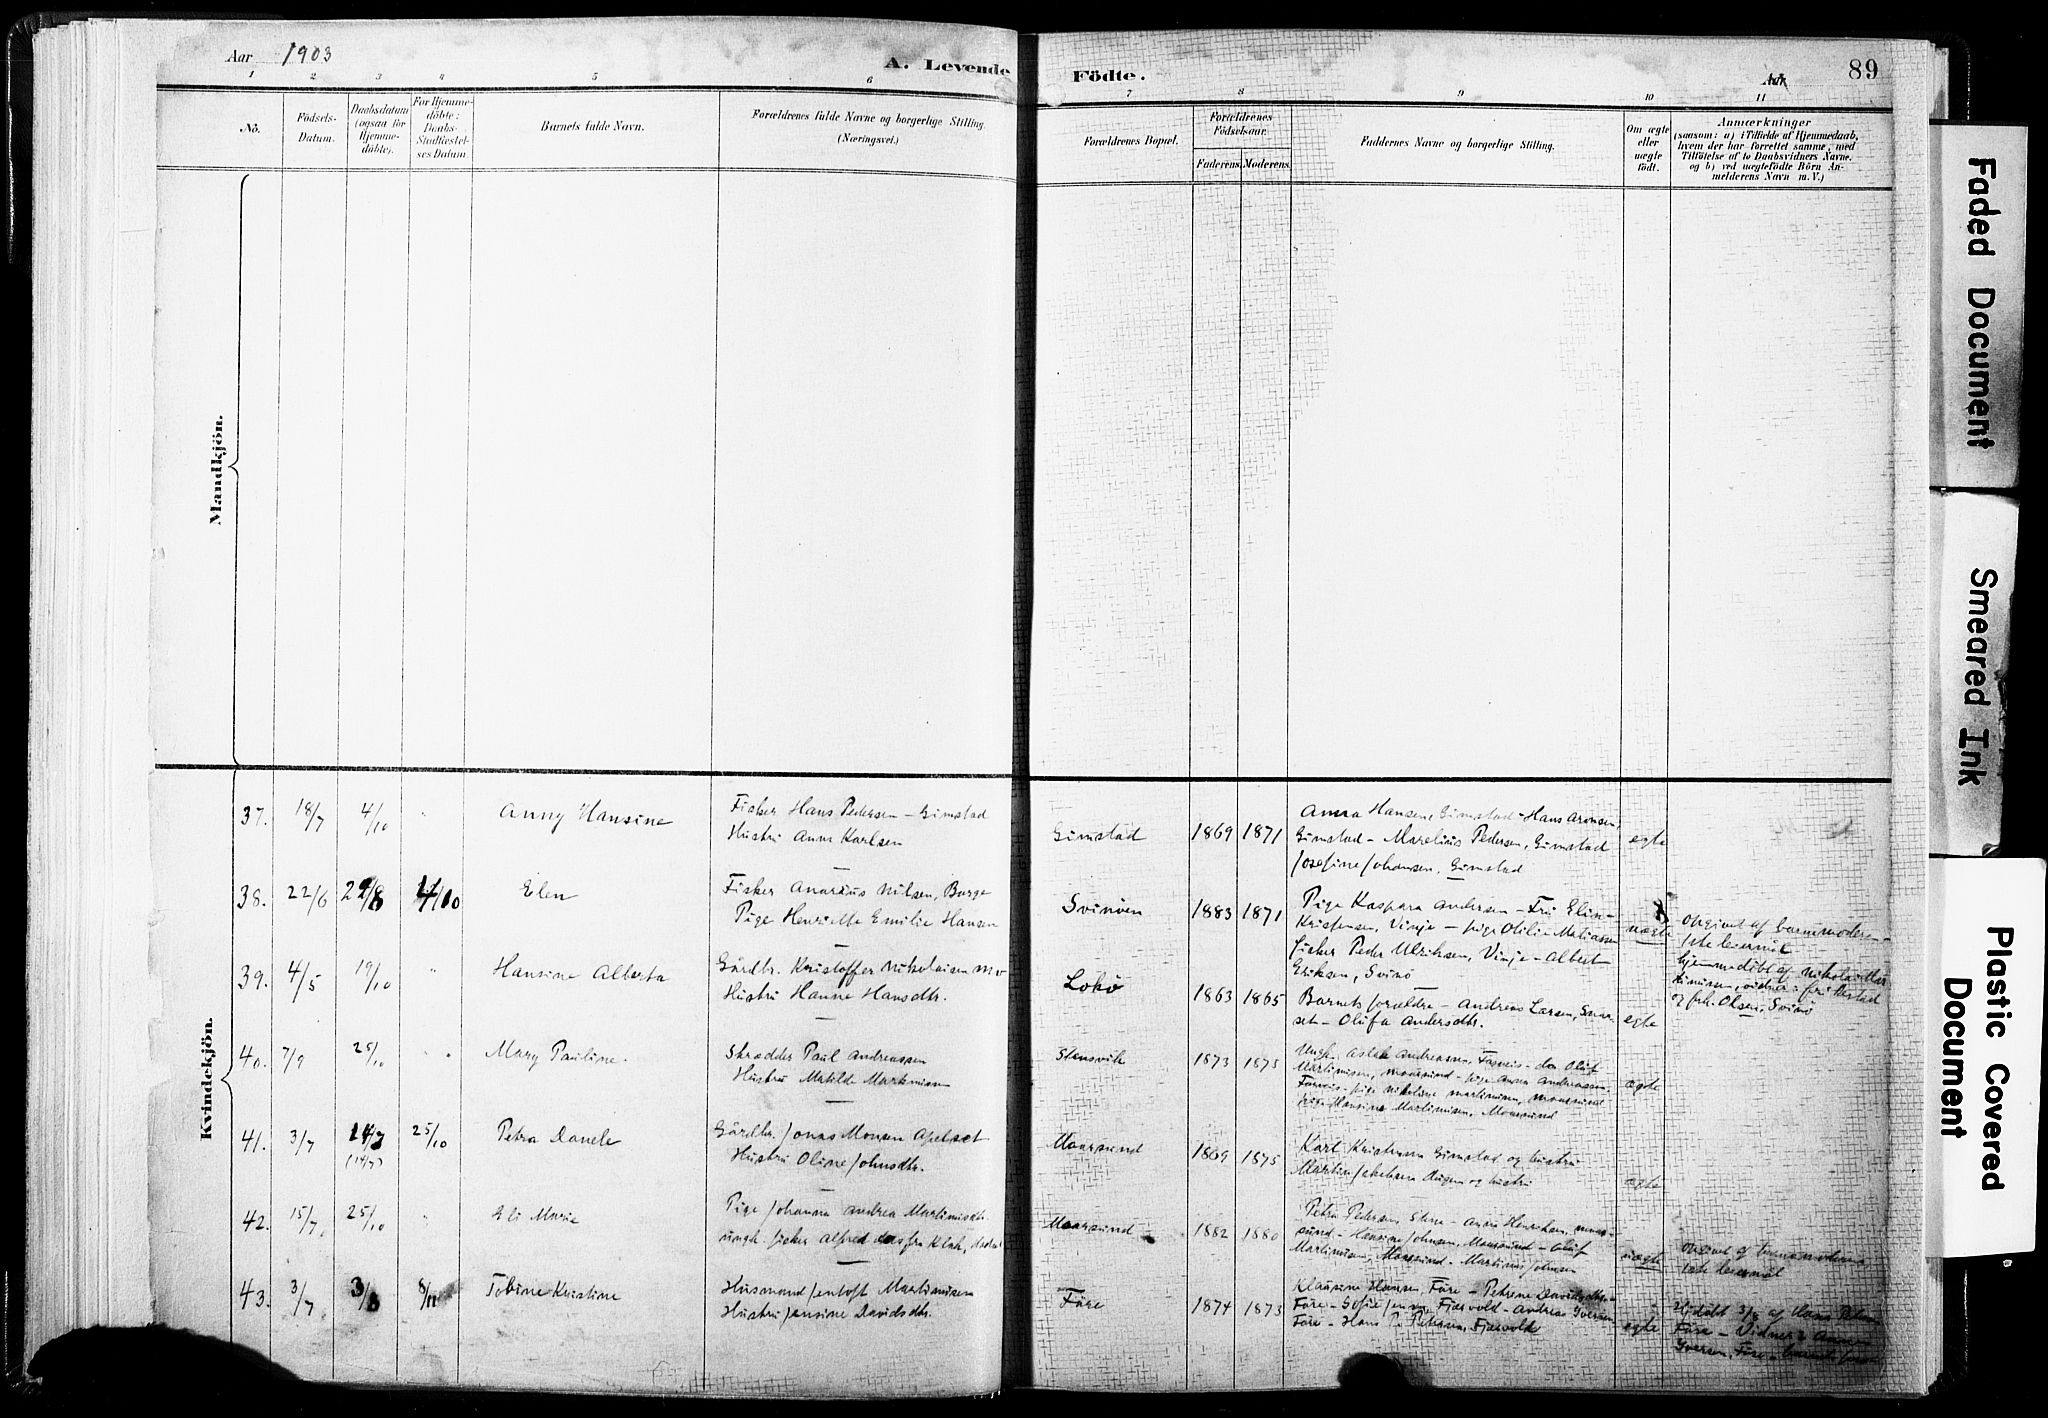 Aar 1903
A. Levende Födte.
Aar
89
1 2 3 4 5 6 7 8 9 10 11
No.
Födsels-
Datum.
Daabsdatum
(ogsaa for
Hjemme-
döbte).
For Hjemme-
döbte:
Daabs-
Stadfæstel-
ses Datum
Barnets fulde Navn.
Forældrenes fulde Navne og borgerlige Stilling.
(Næringsvei.)
Forældrenes Bopæl.
Forældrenes
Födselsaar.
Faderens. Moderens.
Faddernes Navne og borgerlige Stilling.
Om ægte
eller
uægte
födt.
Anmærkninger
(saasom: a) i Tilfælde af Hjemmedaab,
hvem der har forrettet samme, med
Tilföielse af to Daabsvidners Navne.
og b) ved uægtefödte Börn An-
melderens Navn m. V.)
Mandkjön.
Kvindekjön.
37. 18/7 4/10 " Anny Hansine
Fisker Hans Pedersen - Gimstad
Hustru Anna Karlsen
Gimstad 1869 1871
Anna Hansen, Gimstad - Hans Aronsen,
Gimstad - Marelius Pedersen, Gimstad
Josefine Johansen, Gimstad
egte
38. 22/6 29/8 4/10 Elen
Fisker Anarius Nilsen, Borge
Pige Henriette Emilie Hansen
Svinöen 1883 1871
Pige Kaspara Andersen - Fru Elin
Kristensen, Vinje - pige Otilie Matiassen
fisker Peder Ulriksen, Vinje - Albert
Eriksen, Svinö
uægte
opgivet af barnemoderen
1ste leiermål
hjemmedöbt af
39. 4/5 19/10 " Hansine Alberta
Gårdbr. Kristoffer Nikolaisen
Hustru Hanne Hansdtr.
Lokö 1863 1865
Barnets forældre - Andreas Larsen,
set - Olufa Andersdtr.
egte
og frk. Olsen, Svinö
40. 7/9 25/10 " Mary Pauline.
Skrædder Paul Andreassen
Hustru Matilde Martinusen
Stensvik 1873 1873
Martinusen, Moarsund - pige Anna Andreassen
pige Nikoline Martinusen, Moarsund
pige Hansine Martinusen, Moarsund
ægte
41. 3/7 14/7 25/10 Petra Danele
(14/7)
Gårdbr. Jonas Monsen
Hustru Oline Johnsdtr.
Moarsund 1869 1875
Karl Kristensen Gimstad og hustru
Martin Jakobsen og hustru
ægte
42. 15/7 25/10 " Eli Marie
Pige Johanna Andrea Martinusdtr.
ungk. fisker Alfred
Moarsund 1882 1880
Petra Pedersen, Stene - Anna Henriksen,
sund - Hansine Johnsen, Moarsund - Oluf
Martinusen, Moarsund - Martinus Johnsen
uægte
opgivet af barnemoderen
1ste leiermål
43. 3/7 3/8 8/11 Tobine Kristine
Husmand Jentoft Martinusen
Hustru Jensine Davidsdtr.
Före 1874 1873
Klausine Hansen, Före - Petrine Davidsdtr.
Före - Sofie Jensen, Fjærvold - Andreas Iversen
Före - Hans P. Petersen, Fjærvold
egte
Hjdöbt 3/8 af Hans
Före - Vidner
Iversen, Före
Faded Document
Smeared Ink
Plastic Covered
Document